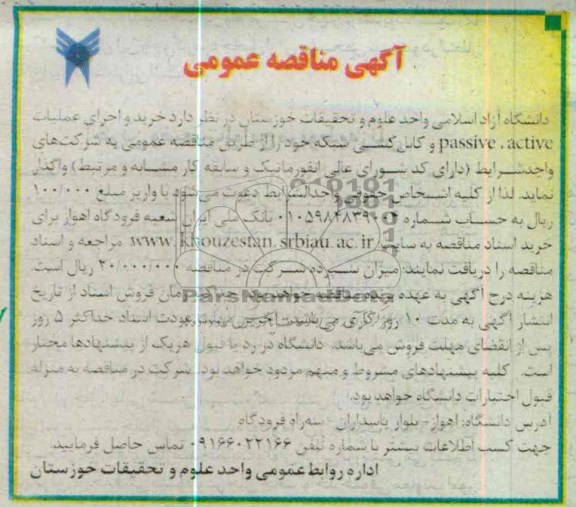 آگهی مناقصه عمومی
دانشگاه آزاد اسلامی واحد علوم و تحقیقات خوزستان در نظر دارد خرید و اجرای عملیات
passive ، active و کابل کشی شبکه خود را از طریق مناقصه عمومی به شرکت‌های
واجدشرایط (دارای کد شورای عالی انفورماتیک و سابقه کار مشابه و مرتبط) واگذار
نماید. لذا از کلیه اشخاص واجدالشرایط دعوت می‌شود با واریز مبلغ ۱۰۰/۰۰۰
ریال به حساب شماره بانک ملی ایران شعبه فرودگاه اهواز برای
خرید اسناد مناقصه به سایت www.khouzestan.srbiau.ac.ir مراجعه و اسناد
مناقصه را دریافت نمایند. میزان سپرده شرکت در مناقصه ۲۰/۰۰۰/۰۰۰ ریال است.
هزینه درج آگهی به عهده زمان فروش اسناد از تاریخ
انتشار آگهی به مدت ۱۰ روز کاری می‌باشد. آخرین مهلت عودت اسناد حداکثر ۵ روز
پس از انقضای مهلت فروش می‌باشد. دانشگاه در رد یا قبول هریک از پیشنهادها مختار
است. کلیه پیشنهادهای مشروط و مبهم مردود خواهد بود. شرکت در مناقصه به منزله
قبول اختیارات دانشگاه خواهد بود.
آدرس دانشگاه: اهواز- بلوار پاسداران - سه‌راه فرودگاه
جهت کسب اطلاعات بیشتر با شماره تلفن ۰۹۱۶۶۰۲۲۱۶۶ تماس حاصل فرمایید.
اداره روابط عمومی واحد علوم و تحقیقات خوزستان
ParsNamadData